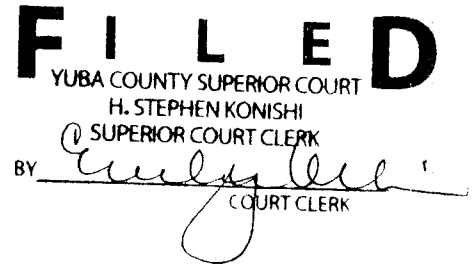 FILED
YUBA COUNTY SUPERIOR COURT
H. STEPHEN KONISHI
SUPERIOR COURT CLERK
BY
COURT CLERK